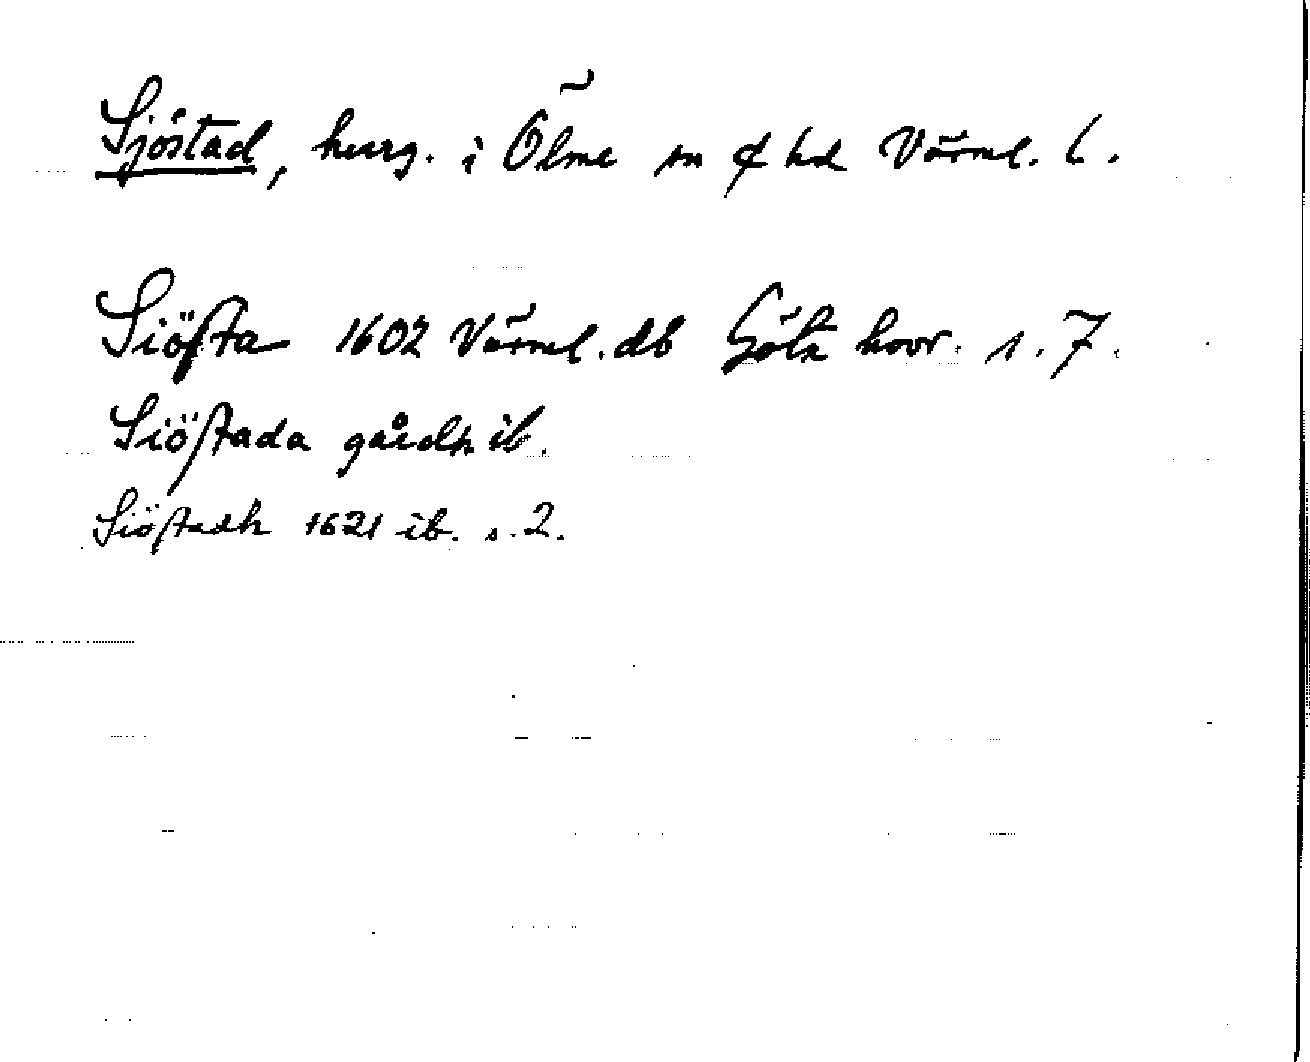 Sjöstad, herrg. i Ölme sn o hd Värml. l.
Siösta 1602 Värml. db Göta hovr. s. 7.
Siöstada gårdh ib.
Siöstadh 1621 ib. s. 2.